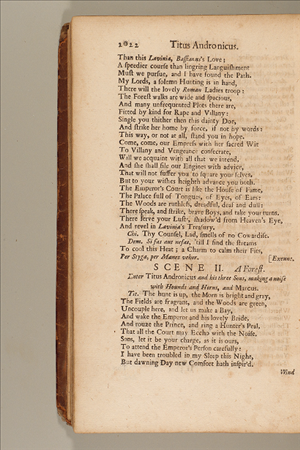 2022 Titus Andronicus.
Than this Lavinia, Bassianus's Love;
A speedier course than lingring Languishment
Must we pursue, and I have found the Path.
My Lords, a solemn Hunting is in hand,
There will the lovely Roman Ladies troop:
The Forest walks are wide and spacious,
And many unfrequented Plots there are,
Fitted by kind for Rape and Villany:
Single you thither then this dainty Doe,
And strike her home by force, if not by words:
This way, or not at all, stand you in hope.
Come, come, our Empress with her sacred Wit
To Villany and Vengeance consecrate,
Will we acquaint with all that we intend,
And she shall file our Engines with advice,
That will not suffer you to square your selves,
But to your wishes heighth advance you both.
The Emperor's Court is like the House of Fame,
The Palace full of Tongues, of Eyes, of Ears:
The Woods are ruthless, dreadful, deaf and dull:
There speak, and strike, brave Boys, and take your turns.
There serve your Lust, shadow'd from Heaven's Eye,
And revel in Lavinia's Treasury.
Chi. Thy Counsel, Lad, smells of no Cowardise.
Dem. Si fas aut nefas, 'till I find the stream
To cool this Heat; a Charm to calm their Fits,
Per Styga, per Manes vehor. [Exeunt.
SCENE II. A Forest.
Enter Titus Andronicus and his three Sons, making a noise
with Hounds and Horns, and Marcus.
Tit. The hunt is up, the Morn is bright and gray,
The Fields are fragrant, and the Woods are green,
Uncouple here, and let us make a Bay,
And wake the Emperor and his lovely Bride,
And rouze the Prince, and ring a Hunter's Peal,
That all the Court may Eccho with the Noise.
Sons, let it be your charge, as it is ours,
To attend the Emperor's Person carefully:
I have been troubled in my Sleep this Night,
But dawning Day new Comfort hath inspir'd.
Wind